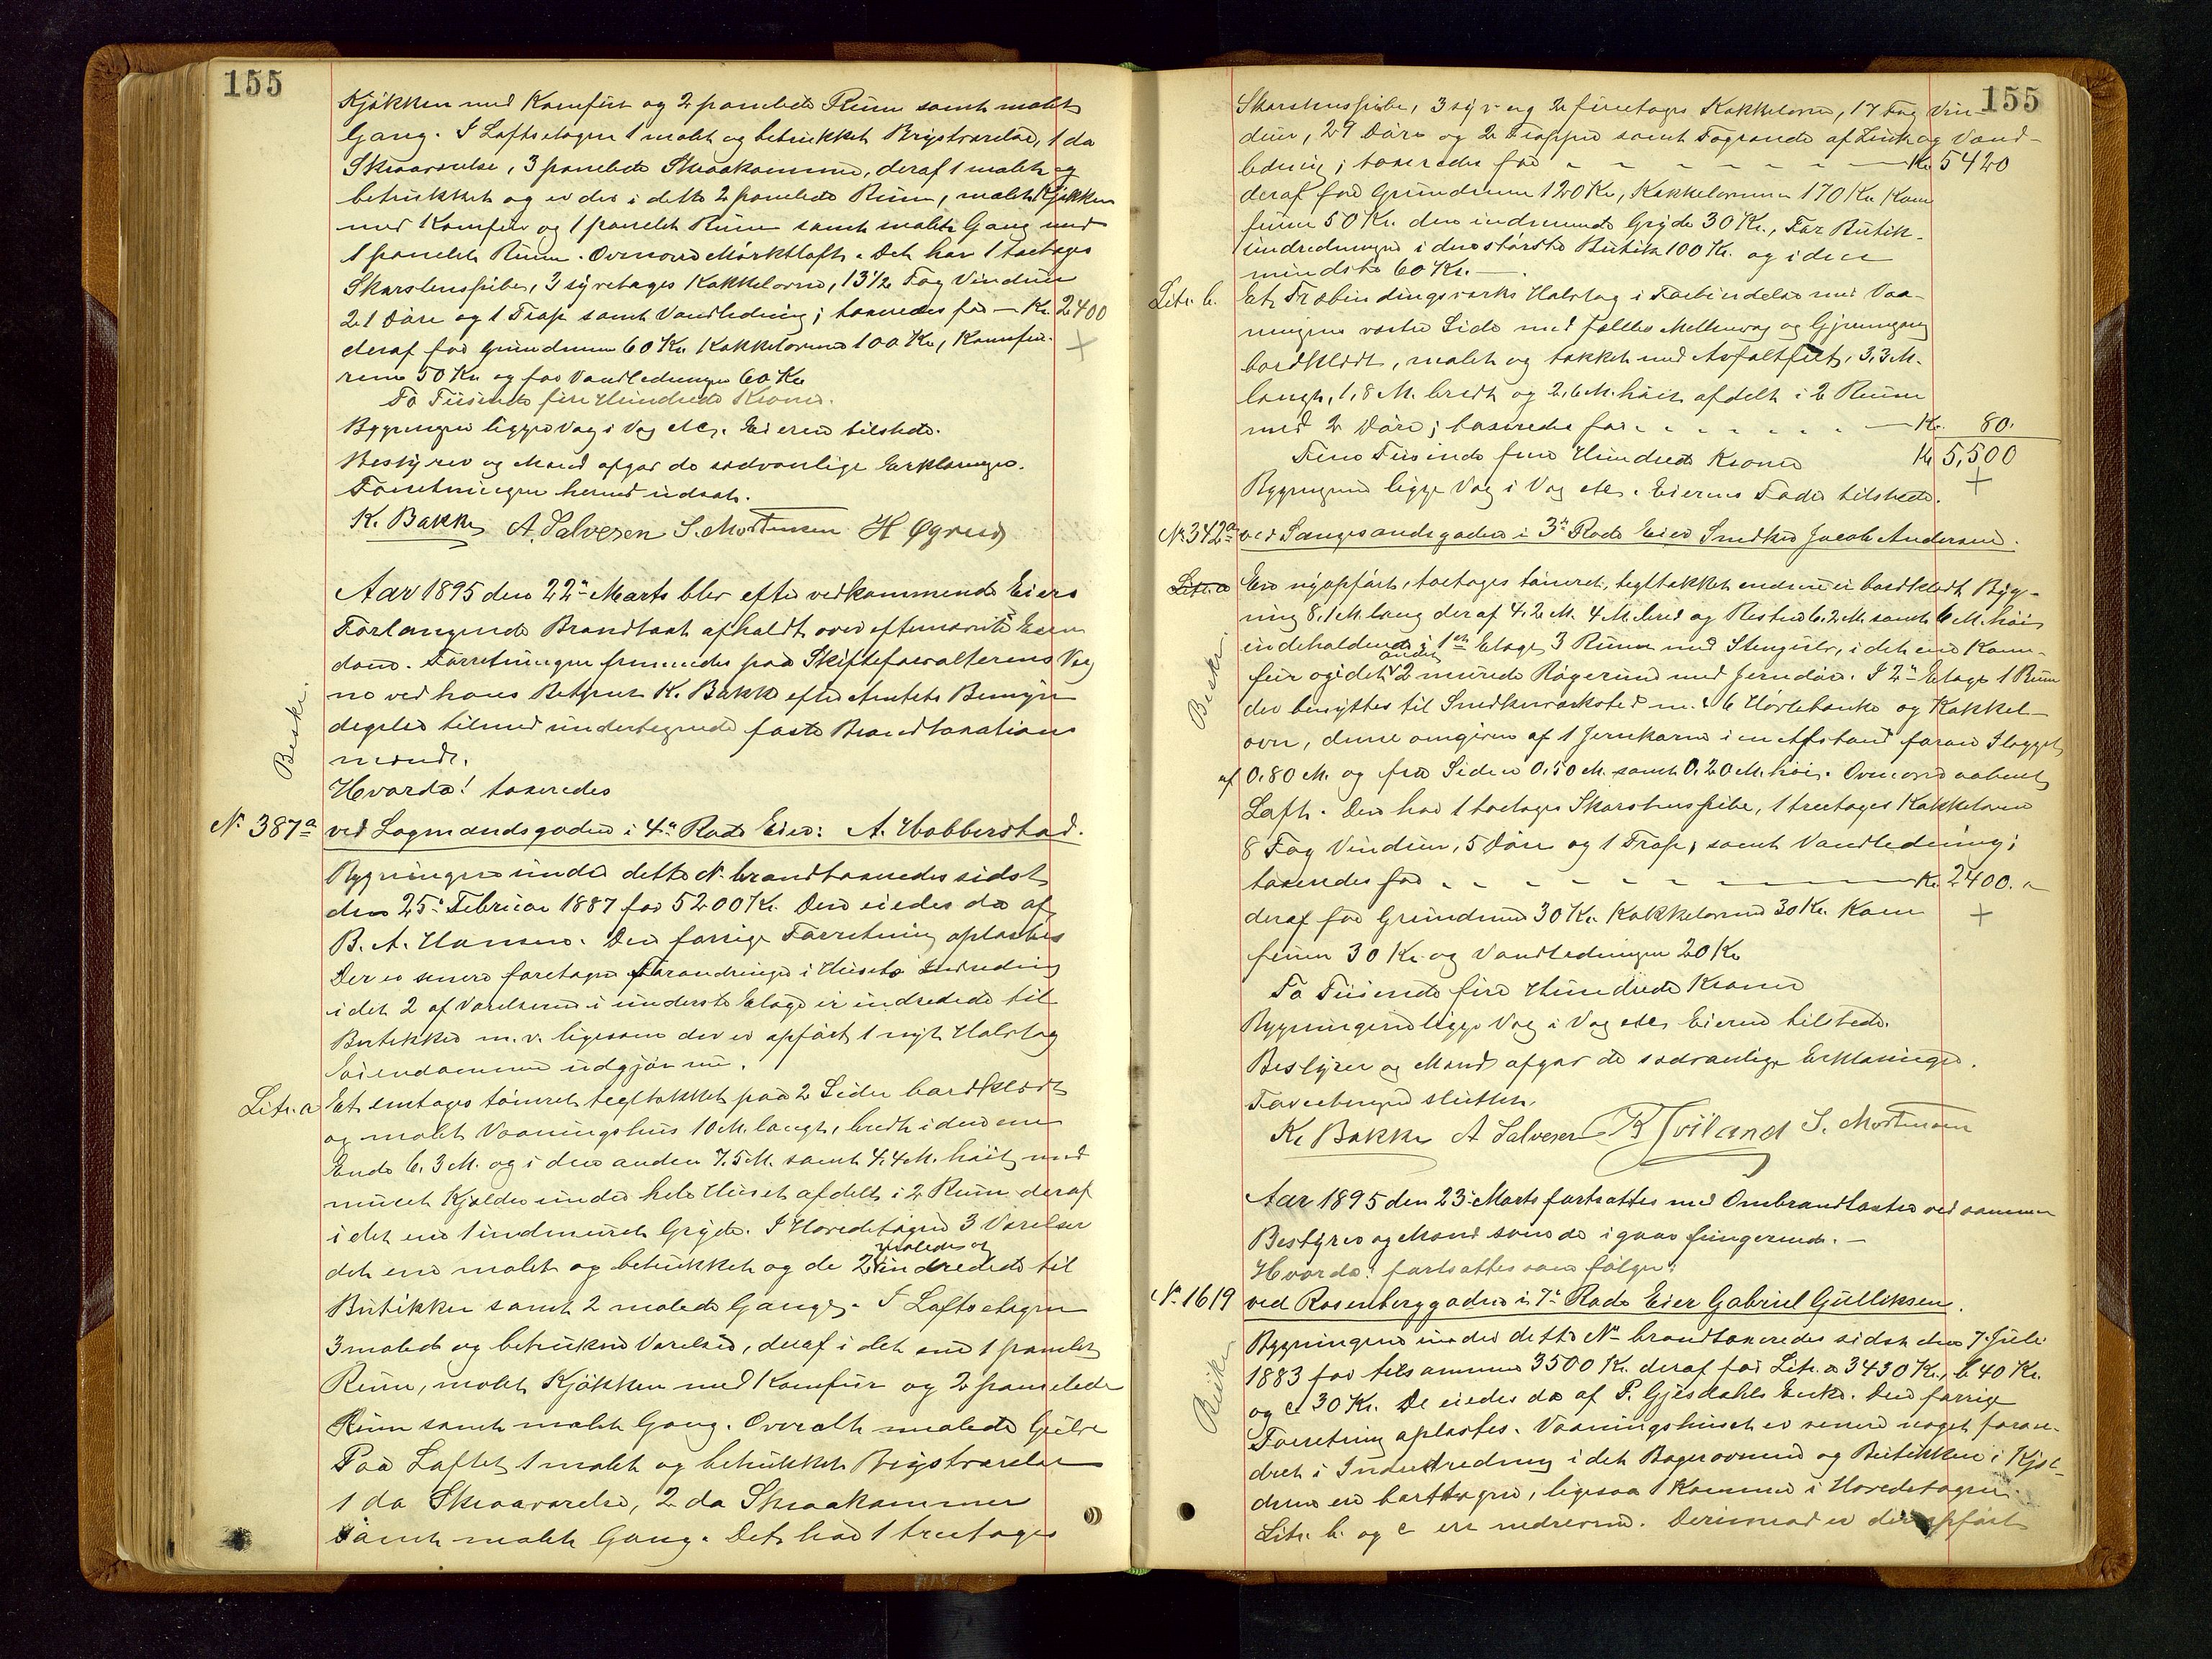 155
Kjøkken med Komfur og 2 panelede Rum samt malet
Gang. I Loftsetagen 1 malet og betrukket Brystværelse, 1 do
Skraaværelse, 3 panelede Skraakammere, deraf 1 malet og
betrukket og er der i dette 2 panelede Rum, malet Kjøkken
med Komfur og 1 panelet Rum samt malet Gang med
1 panelet Rum. Ovenover Mørktloft. Det har 1 toetages
Skorstenspibe, 3 syvetages Kakkelovne, 13½ Fag Vinduer
21 Døre og 1 Trap samt Vandledning; taxeredes for — Kr. 2400
deraf for Grundmuren 60 Kr. Kakkelovnene 100 Kr., Komfu-
rene 50 Kr. og for Vandledningen 60 Kr.
To Tusinde fire Hundrede Kroner.
Bygningen ligger Væg i Væg etc. Eieren tilstede.
Bestyrer og Mænd afgav de sædvanlige Erklæringer.
Forretningen hermed udsat.
K. Bakke A. Salvesen S. Mortensen H Øgreid
Aar 1895 den 22de Marts blev efter vedkommende Eiers
Forlangende Brandtaxt afholdt over efternævnte Eien
domme. Forretningen fremmedes paa Skifteforvalterens Veg
ne ved hans Betjent K. Bakke efter Amtets Bemyn
digelse tilmed undertegnede faste Brandtaxations
mænd.
Beskr.
Hvorda! taxeredes
No 387a ved Lagmandsgaden i 4de Rode Eier: A. Hobberstad.
Bygningen under dette No brandtaxeredes sidst
den 25de Februar 1887 for 5200 Kr. Den eiedes da af
B. A. Hansen. Den forrige Forretning oplæstes
Der er senere foretagen Forandringer i Husets Indredning
idet 2 af Værelserne i underste Etage er indredede til
Butikker m. v. ligesom der er opført 1 nyt Halvtag
Eiendommen udgjør nu.
Litr. a Et enetages tømret tegltækket paa 2 Sider bordklædt
og malet Vaaningshus 10 M. langt, bredt i den ene
Ende 6.3 M. og i den anden 7.5 M. samt 4.4 M. høit med
muret Kjælder under hele Huset afdelt i 2 Rum deraf
i det ene 1 indmuret Gryde. I Hovedetagen 3 Værelser
det ene malet og betrukket og de 2 malede og indredede til
Butikker samt 2 malede Gange. I Loftsetagen
3 malede og betrukne Værelser, deraf i det ene 1 panelet
Rum, malet Kjøkken med Komfur og 2 panelede
Rum samt malet Gang. Overalt malede Gulve
Paa Loftet 1 malet og betrukket Brystværelse
1 do Skraaværelse, 2 do Skraakammer
samt malet Gang. Det har 1 treetages
155
Skorstenspibe, 3 syv- og 2 fireetages Kakkelovne, 17 Fag Vin-
duer, 29 Døre og 2 Trapper samt Tagrende af Zink og Vand-
ledning; taxeredes for — Kr. 5420
deraf for Grundmuren 120 Kr., Kakkelovnene 170 Kr. Kom
furene 50 Kr. den indmurede Gryde 30 Kr., For Butik-
indredningen i den største Butik 100 Kr. og i den
mindste 60 Kr. —
Litr. b. Et Træbindingsværks Halvtag i Forbindelse med Vaa-
ningens vestre Side med fælles Mellemvæg og Gjennemgang
bordklædt, malet og tækket med Asfaltfilt, 3.3 M.
langt, 1,8 M. bredt og 2,6 M. høit afdelt i 2 Rum
med 2 Døre; taxeredes for — Kr. 80.
Fem Tusinde fem Hundrede Kroner Kr. 5,500
Bygningerne ligge Væg i Væg etc. Eierens Fader tilstede.
No 342a ved Langesandsgaden i 3de Rode Eier Snedker Jacob Andersen.
Beskr.
Litr. a En nyopført, toetages tømret, tegltækket endnu ei bordklædt Byg-
ning 8,1 M. lang deraf 4.2 M. 4 M. bred og Resten 6.2 M. samt 6 M. høi
indeholdende i 1ste Etage 3 Rum med Stengulv, i det ene Kom-
fur og i det andet 2 murede Røgerum med Jerndøre. I 2den Etage 1 Rum
der benyttes til Snedkerværksted med 6 Høvlebænke og Kakkel-
ovn, denne omgiven af 1 Jernkarm i en Afstand foran Ilægget
af 0.80 M. og fra Siden 0,50 M. samt 0.20 M. høi. Ovenover aabent
Loft. Den har 1 toetages Skorstenspibe, 1 treetages Kakkelovn
8 Fag Vinduer, 5 Døre og 1 Trap, samt Vandledning;
taxeredes for — Kr. 2400. "
deraf for Grundmuren 30 Kr. Kakkelovnen 30 Kr. Kom
furen 30 Kr. og Vandledningen 20 Kr.
To Tusinde fire Hundrede Kroner
Bygningen ligger Væg i Væg etc. Eieren tilstede.
Bestyrer og Mænd afgav de sædvanlige Erklæringer.
Forretningen sluttet.
K. Bakke A Salvesen S. Mortensen
Aar 1895 den 23de Marts fortsattes med Ombrandtaxter ved samme
Bestyrer og Mænd som de igaar fungerende. —
Hvorda: fortsattes som følger:
No 1619 ved Rosenberggaden i 7de Rode Eier Gabriel Gulliksen.
Beskr.
Bygningerne under dette No brandtaxeredes sidst den 7. Juli
1883 for tilsammen 3500 Kr. deraf for Litr. a 3430 Kr., b 40 Kr.
og c 30 Kr. De eiedes da af P. Gjesdahls Enke. Den forrige
Forretning oplæstes. Vaaningshuset er senere noget foran-
dret i Indredning idet Bagerovnen og Butikken i Kjæl-
deren ere borttagne, ligesaa 1 Kammer i Hovedetagen.
Litr. b. og c ere nedrevne. Derimod er der opført